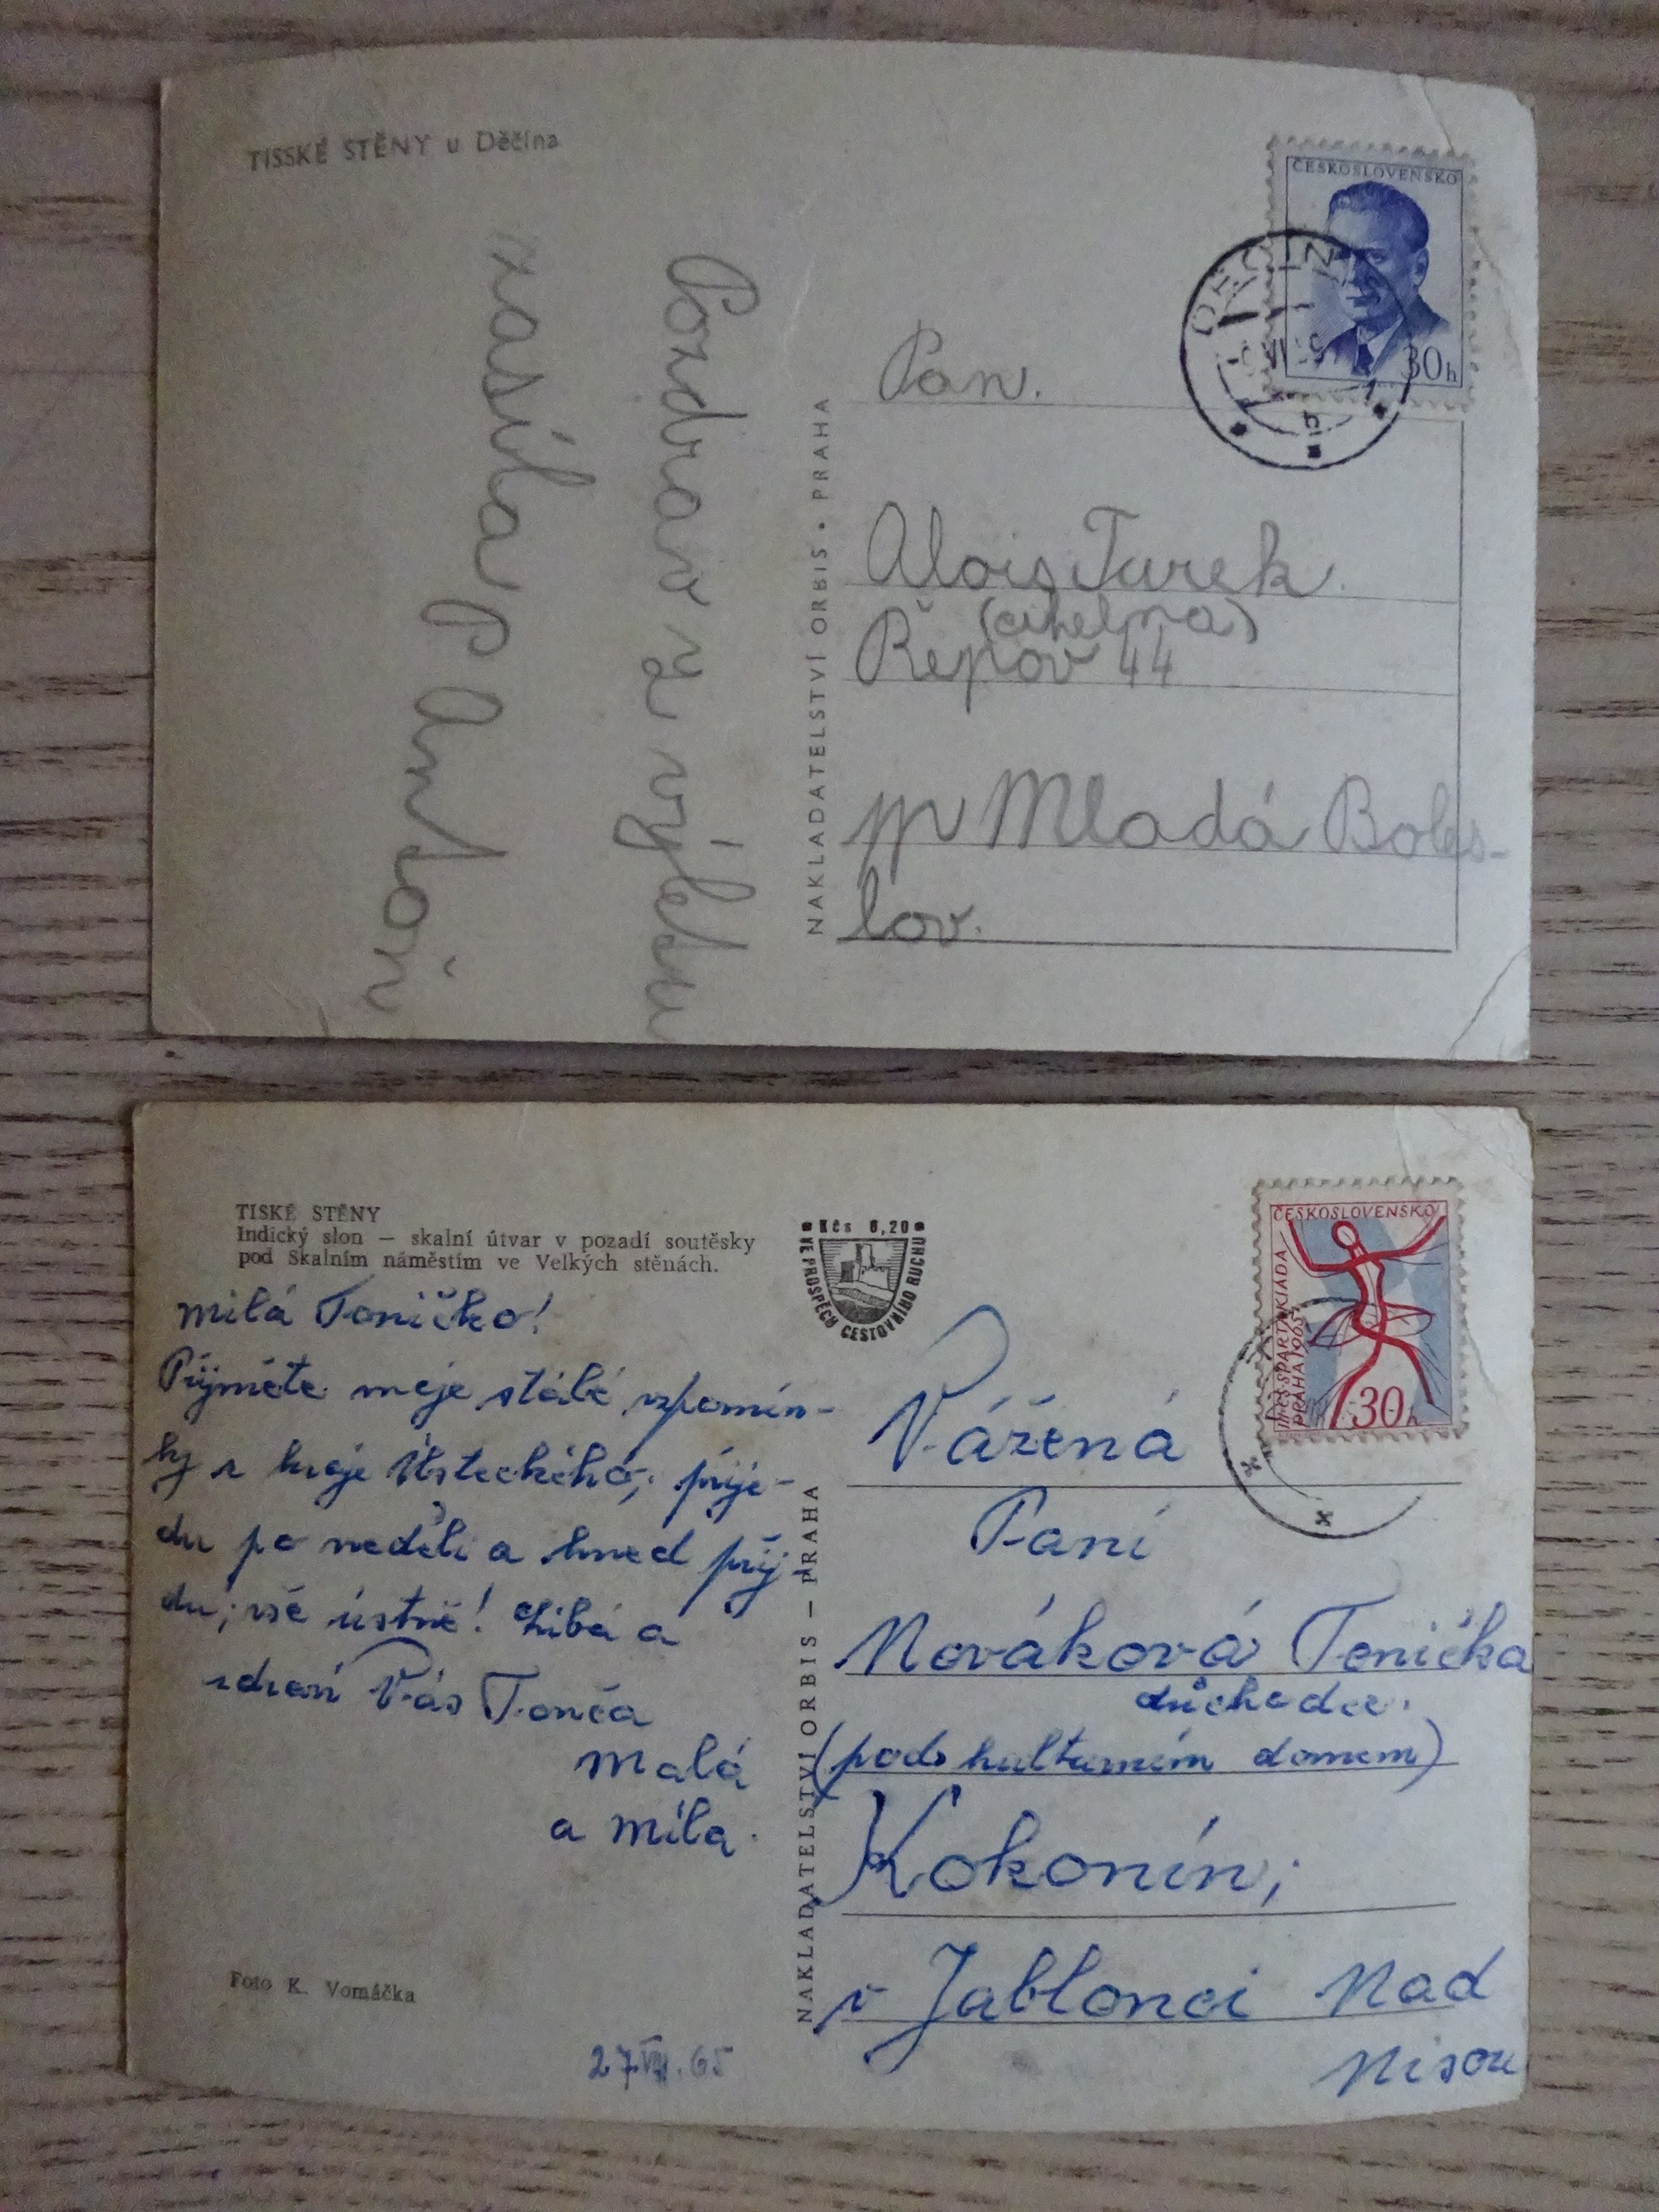 TISSKÉ STĚNY u Děčína
Pozdrav z výletu
zasíla P Antoň
NAKLADATELSTVÍ ORBIS • PRAHA
ČESKOSLOVENSKO
30h
DĚČÍN
Pan.
Alois Turek.
(cihelna)
Řepov 44
p Mladá Boles-
lov.
TISKÉ STĚNY
Indický slon — skalní útvar v pozadí soutěsky
pod Skalním náměstím ve Velkých stěnách.
Milá Toničko!
Přijměte moje stálé vzpomín-
ky z kraje Ústeckého, přije-
du po neděli a hned příj-
du, vše ústně! Líbá a
zdraví Vás Tonča
Malá
a Míla.
Foto K. Vomáčka
27.VII.65
Kčs 0,20
VE PROSPĚCH CESTOVNÍHO RUCHU
NAKLADATELSTVÍ ORBIS — PRAHA
ČESKOSLOVENSKO
III. CS SPARTAKIÁDA
PRAHA 1965
30h
Vážená
Paní
Nováková Tonička
důchodce.
(pod kulturním domem)
Kokonín;
v Jablonci Nad
Nisou